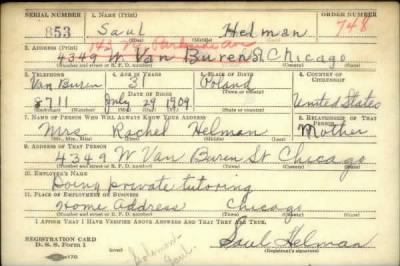 SERIAL NUMBER 1. NAME (Print) ORDER NUMBER
853 Saul Helman 748
(First) (Middle) (Last)
2. ADDRESS (Print)
4349 W Van Buren St Chicago
(Number and street or R. F. D. number) (Town) (County) (State)
3. TELEPHONE 4. AGE IN YEARS 5. PLACE OF BIRTH 6. COUNTRY OF CITIZENSHIP
Van Buren 31 Poland
DATE OF BIRTH
8711 July 29 1909 United States
7. NAME OF PERSON WHO WILL ALWAYS KNOW YOUR ADDRESS 8. RELATIONSHIP OF THAT PERSON
Mrs Rachel Helman Mother
(Mr., Mrs., Miss) (First) (Middle) (Last)
9. ADDRESS OF THAT PERSON
4349 W Van Buren St Chicago
(Number and street or R. F. D. number) (Town) (County) (State)
10. EMPLOYER'S NAME
Doing private tutoring
11. PLACE OF EMPLOYMENT OR BUSINESS
Home Address Chicago
(Number and street or R. F. D. number) (Town) (County) (State)
I AFFIRM THAT I HAVE VERIFIED ABOVE ANSWERS AND THAT THEY ARE TRUE.
REGISTRATION CARD
D. S. S. Form 1
Saul Helman
(Registrant's signature)